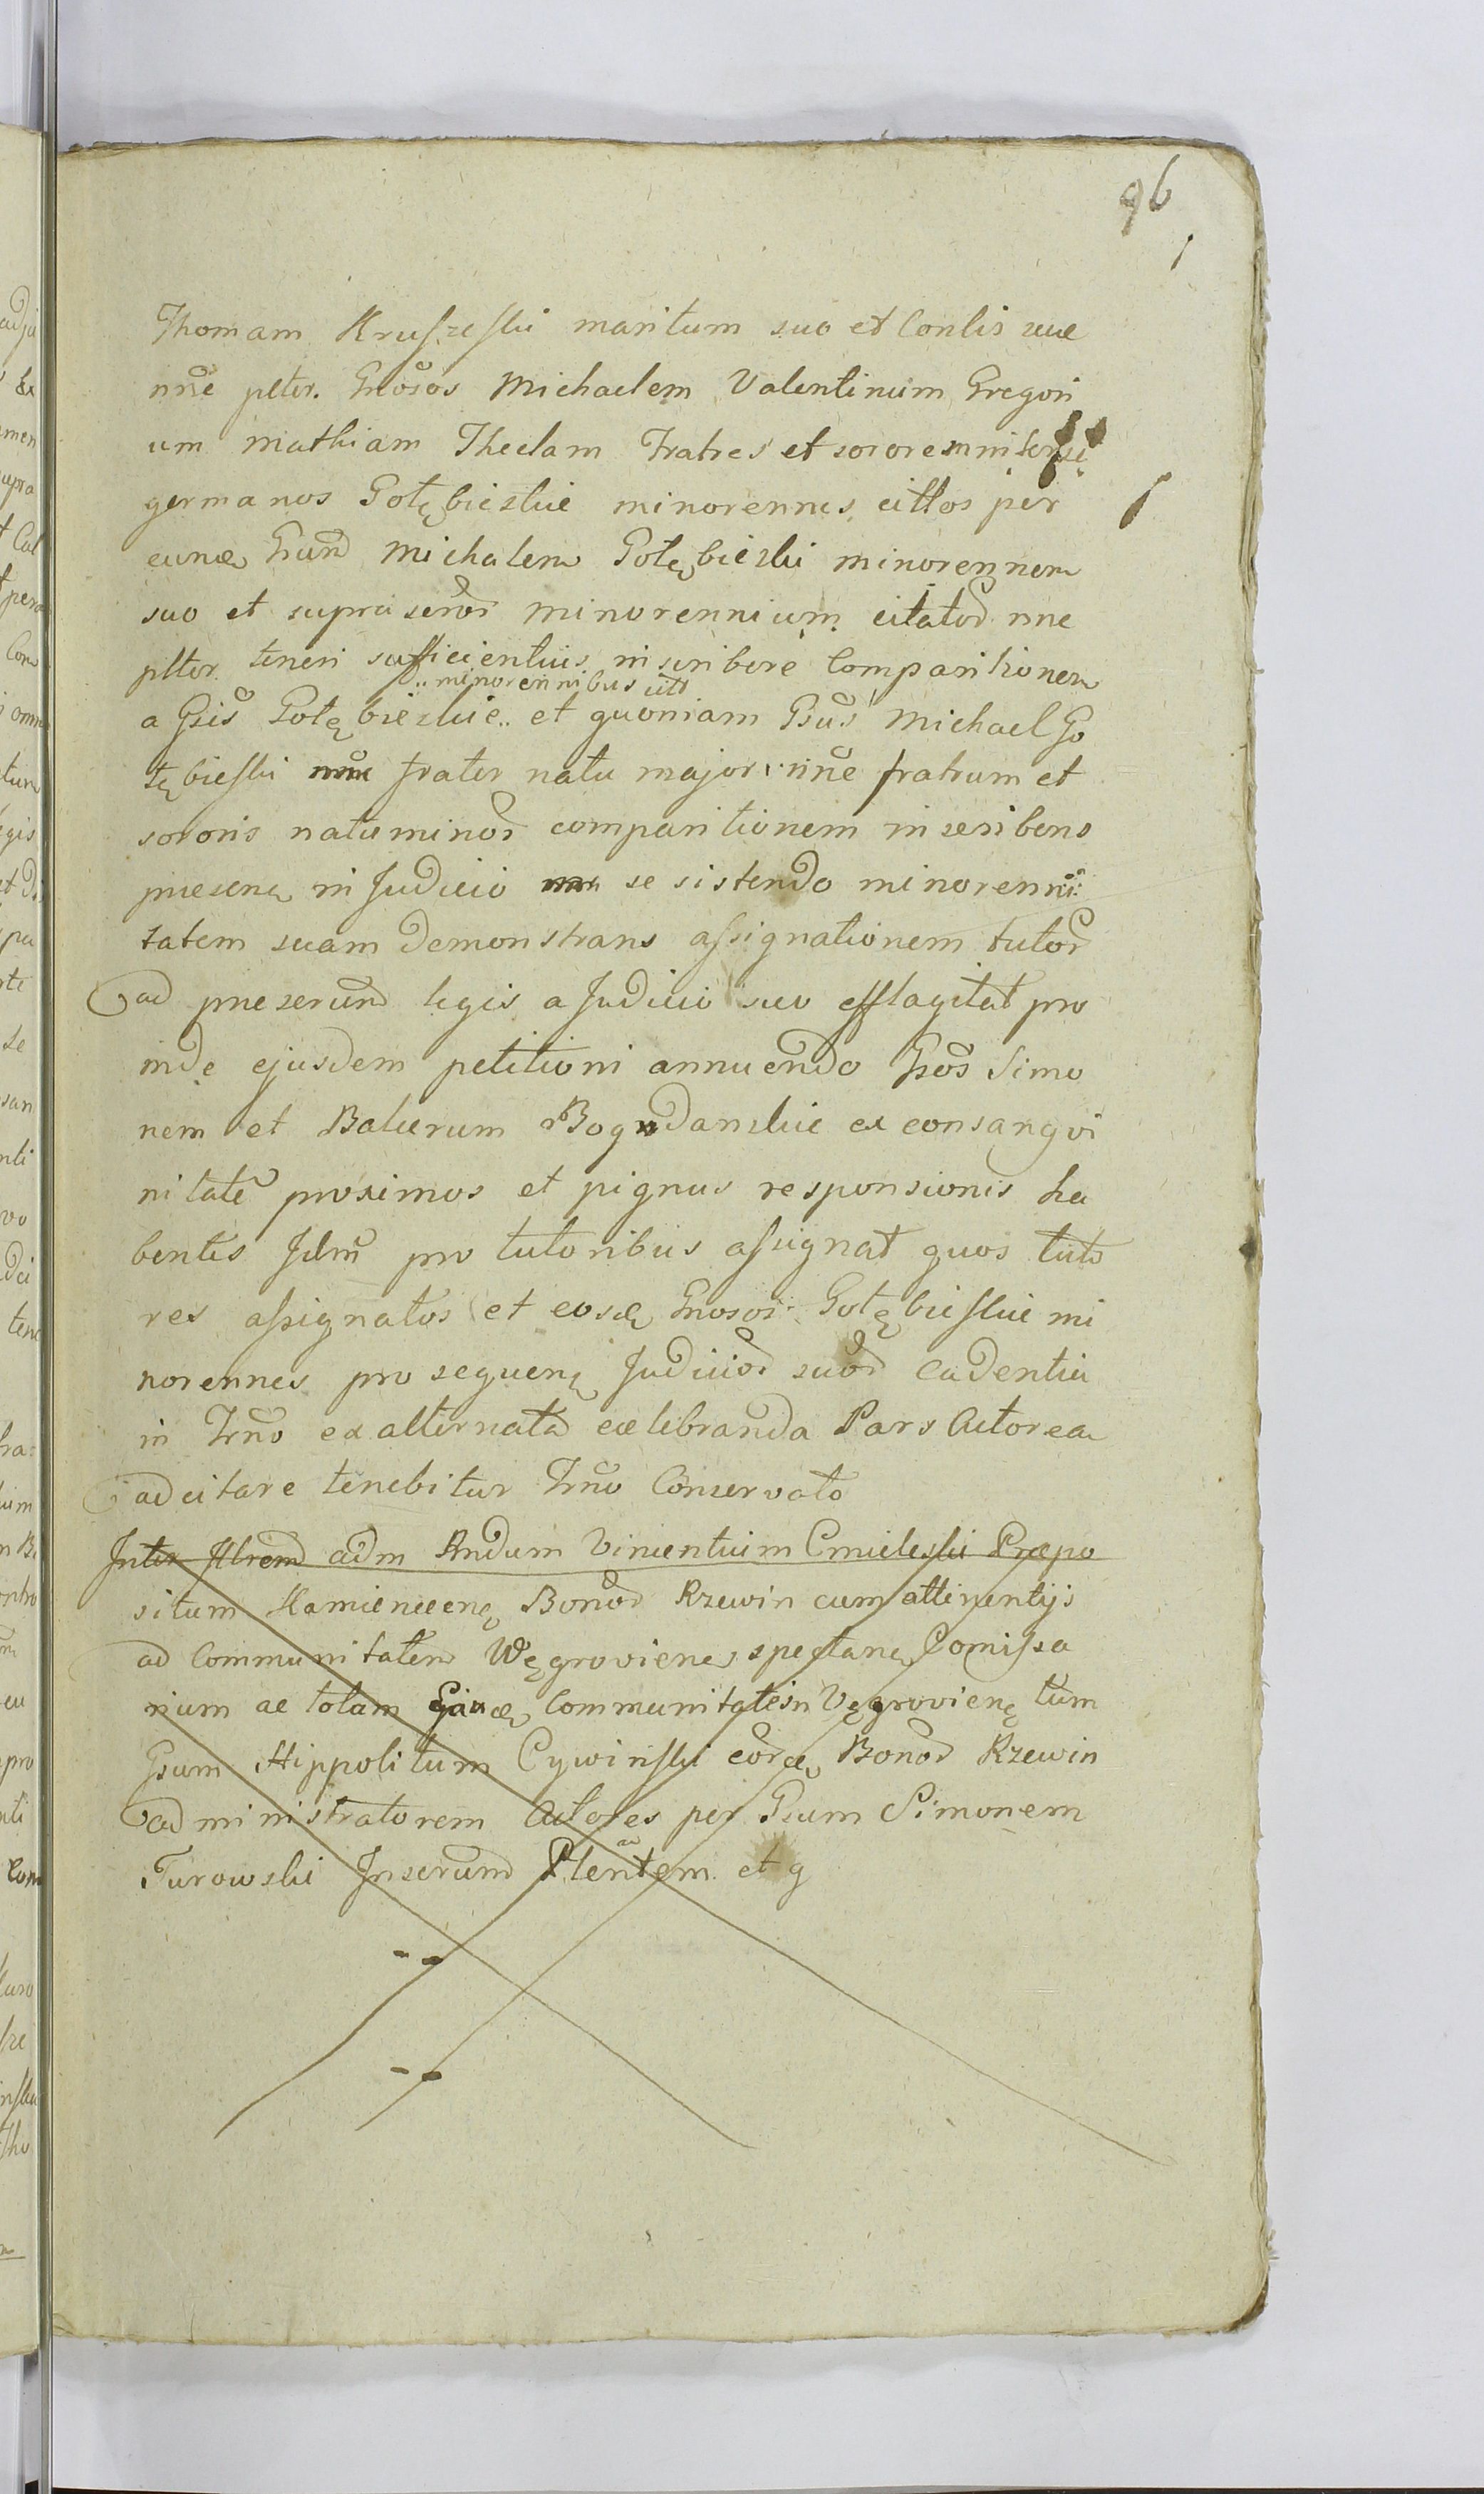 96
Thomam Kruszeski maritum suo et Contis suae
nne plter. Gnosos Michaelem Valentinum Gregori
um Mathiam Theclam Fratres et sororem inter se
germanos Gołębieskie minorennes cittos per
eunde Gsum Michalem Gołębieski minorennem
suo et supra minorennium citator nne
plter teneri sufficientius inscribere Comparitionem
.. minorennibus citt
a Gsis Gołębieskie .. et quoniam Gsus Michael Go
łębieski frater natu major nne fratrum et
sororis natu minor comparitionem inscribens
praesens in Judicio se sistendo minorenni
tatem suam demonstrans assignationem tutor
ad praescrum legis a Judicio suo efflagitat pro
inde ejusdem petitioni annuendo Gsos Simo
nem et Bogudanskie ex consangvi
nitate proximos et pignus responsionis ha
bentes Jdm pro tutoribus assignat quos tuto
res assignatos et eosde Gnosos Gołębieskie mi
norennes pro sequen Judicior suor cadentia
in Trno ex alternata celebranda Pars Actorea
adcitare tenebitur Trno Conservato
Inter Illrem adm Rndum Vincentium Cmieleski Praepo
situm Kamieneen Bonor Rzewin cum attinentijs
ad Communitatem Węgrovien spectan Comissa
rium ac totam Communitatem Vęgrovien tum
Gsum Hippolitum Cywinski eorde Bonor Rzewin
administratorem Actores per Gsum Simonem
Turowski Inserum Plentem et g